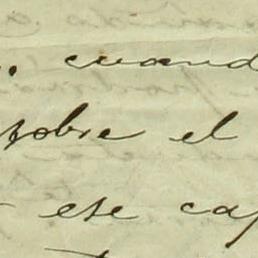 cuand
sobre el
ese cap